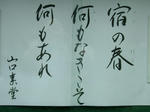 宿の春
何もなきこそ
何もあれ
山口素堂